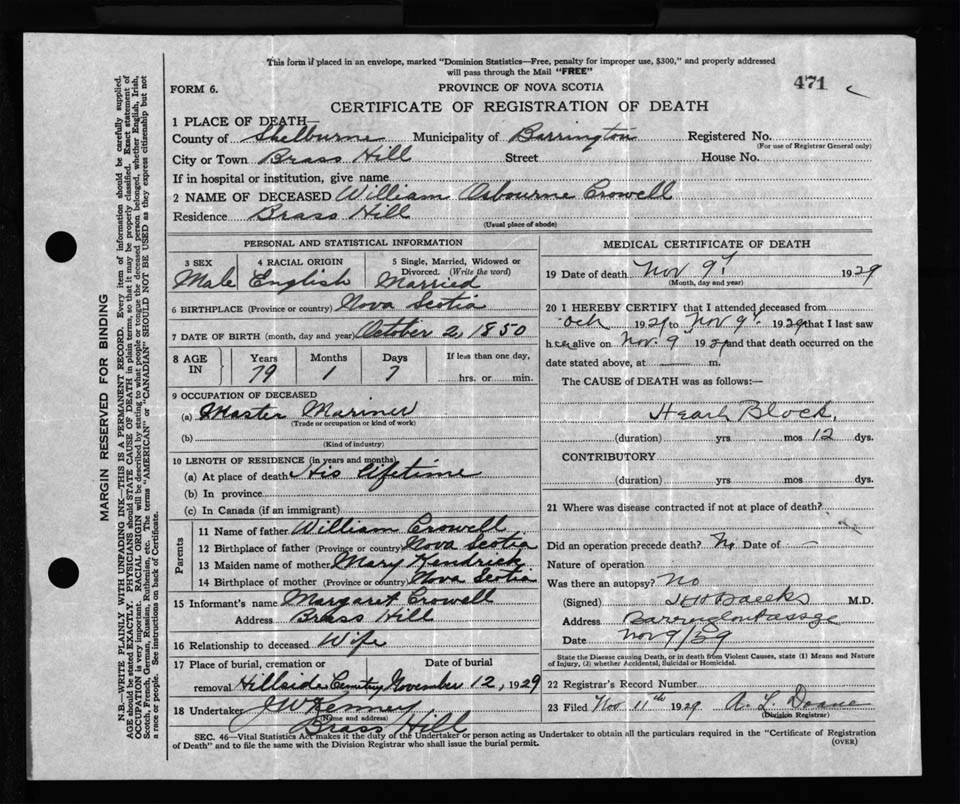 This form if placed in an envelope, marked "Dominion Statistics—Free, penalty for improper use, $300," and properly addressed
will pass through the Mail "FREE"
FORM 6.
PROVINCE OF NOVA SCOTIA
471
CERTIFICATE OF REGISTRATION OF DEATH
1 PLACE OF DEATH—
County of Shelburne Municipality of Barrington Registered No.
(For use of Registrar General only)
City or Town Brass Hill Street House No.
If in hospital or institution, give name
2 NAME OF DECEASED William Osbourne Crowell
Residence Brass Hill
(Usual place of abode)
PERSONAL AND STATISTICAL INFORMATION
3 SEX 4 RACIAL ORIGIN 5 Single, Married, Widowed or
Divorced. (Write the word)
Male English Married
6 BIRTHPLACE (Province or country) Nova Scotia
7 DATE OF BIRTH (month, day and year) October 2, 1850
8 AGE IN Years Months Days If less than one day,
79 1 7 hrs. or min.
9 OCCUPATION OF DECEASED
(a) Master Mariner
(Trade or occupation or kind of work)
(b)
(Kind of industry)
10 LENGTH OF RESIDENCE (in years and months)
(a) At place of death His lifetime
(b) In province
(c) In Canada (if an immigrant)
Parents
11 Name of father William Crowell
12 Birthplace of father (Province or country) Nova Scotia
13 Maiden name of mother Mary Kendrick
14 Birthplace of mother (Province or country) Nova Scotia
15 Informant's name Margaret Crowell
Address Brass Hill
16 Relationship to deceased Wife
17 Place of burial, cremation or Date of burial
removal Hillside Cemetry November 12, 1929
18 Undertaker J W Kenney
(Name and address)
Brass Hill
MEDICAL CERTIFICATE OF DEATH
19 Date of death Nov 9 1929
(Month, day and year)
20 I HEREBY CERTIFY that I attended deceased from
Oct 1929 to Nov 9 1929 that I last saw
h alive on Nov. 9 1929 and that death occurred on the
date stated above, at m.
The CAUSE OF DEATH was as follows:—
Heart Block.
(duration) yrs mos 12 dys.
CONTRIBUTORY
(duration) yrs mos dys.
21 Where was disease contracted if not at place of death?
Did an operation precede death? No Date of -
Nature of operation
Was there an autopsy? No
(Signed) M.D.
Address Barrington Passge
Date Nov 9/29
State the Disease causing Death, or in death from Violent Causes, state (1) Means and Nature
of Injury, (2) whether Accidental, Suicidal or Homicidal.
22 Registrar's Record Number
23 Filed Nov 11th 1929 A. L. Doane
(Division Registrar)
SEC. 46—Vital Statistics Act makes it the duty of the Undertaker or person acting as Undertaker to obtain all the particulars required in the "Certificate of Registration
of Death" and to file the same with the Division Registrar who shall issue the burial permit.
(OVER)
MARGIN RESERVED FOR BINDING
N.B.—WRITE PLAINLY WITH UNFADING INK—THIS IS A PERMANENT RECORD. Every item of information should be carefully supplied.
AGE should be stated EXACTLY. PHYSICIANS should STATE CAUSE OF DEATH in plain terms, so that it may be properly classified. Exact statement of
OCCUPATION is very important. RACIAL ORIGIN will be described by stating to what people or tongue the deceased person belonged, whether English, Irish,
Scotch, French, German, Russian, Ruthenian, etc. The terms "AMERICAN" or "CANADIAN" SHOULD NOT BE USED as they express citizenship but not
a race or people. See instructions on back of Certificate.